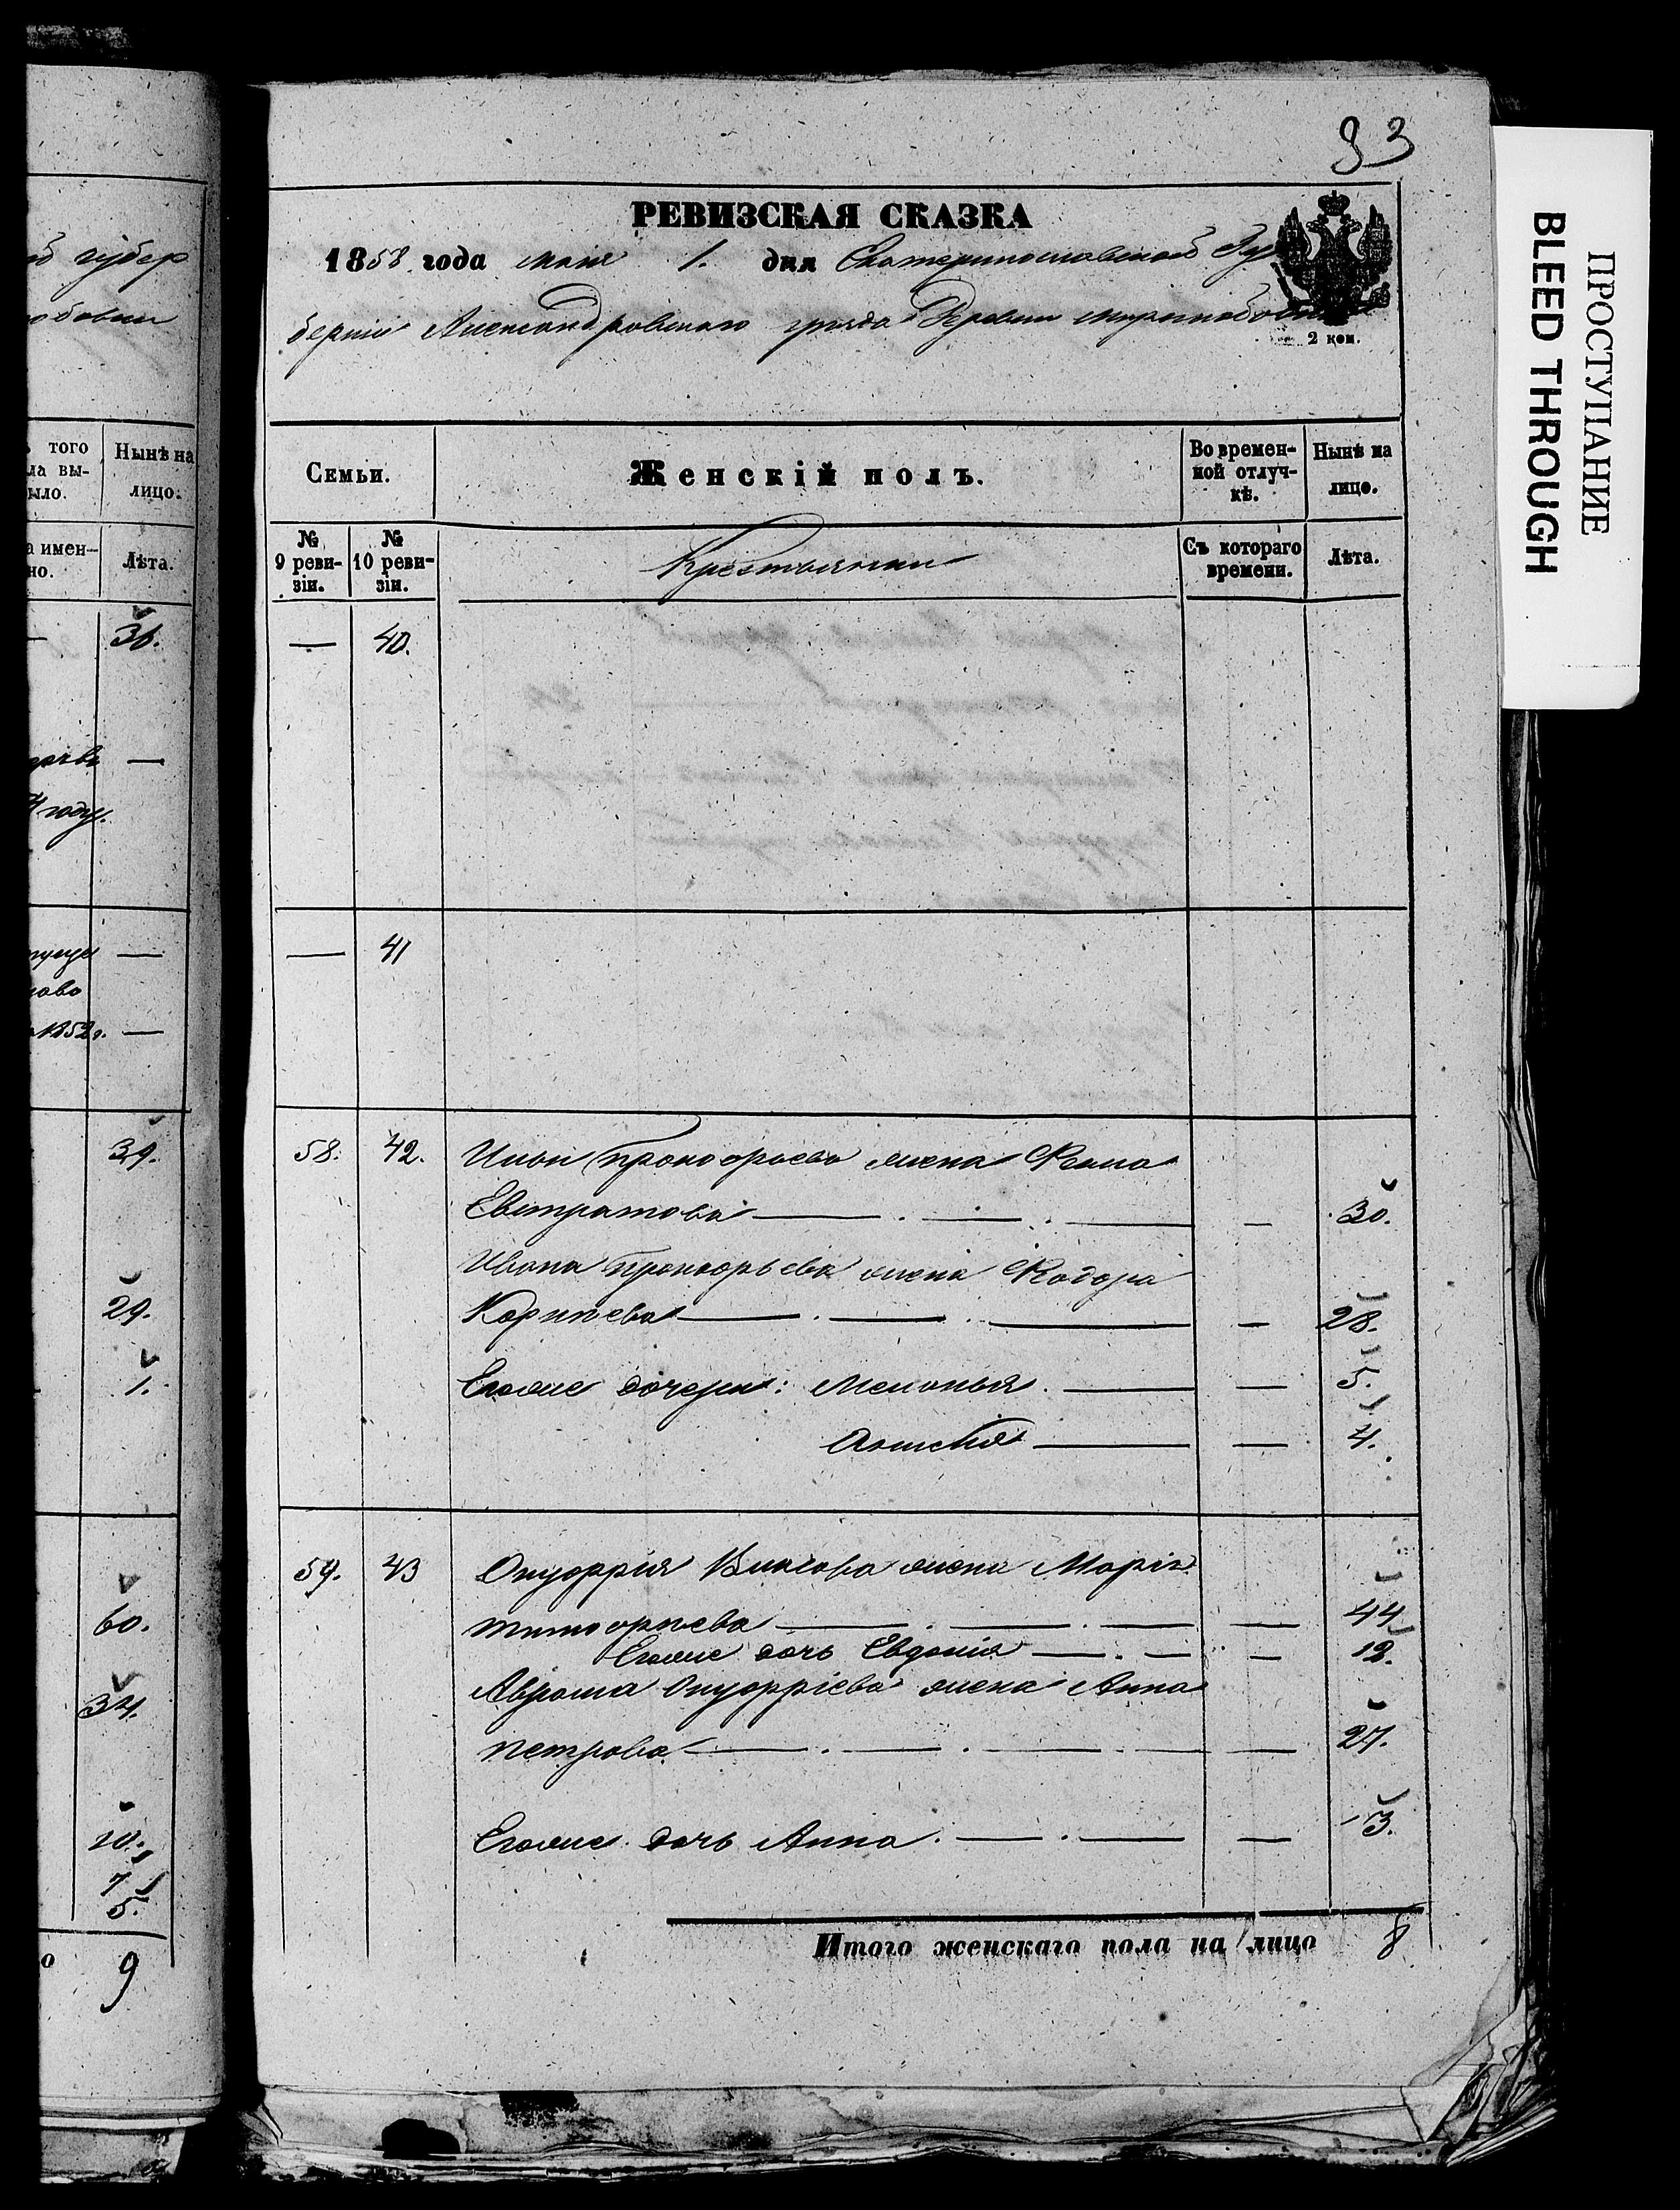 93
РЕВИЗСКАЯ СКАЗКА
1858 года мая 1. дня Екатеринославской Гу
берніи Александровскаго уѣзда Деревни
2 коп.
Семьи.
Женскій полъ.
Во времен-
ной отлуч-
кѣ.
Нынѣ на
лицо.
№
9 реви-
зіи.
№
10 реви-
зіи.
Крестьянки
Съ котораго
времени.
Лѣта.
— 40.
— 41
58. 42. Прокофьева жена
Евстратова — — — — 30.
Ивана Прокофьева жена Ѳодора
Корнѣева — — — — 28.
Егоже дочери: Меланья — — 5.
Анисья — — 4.
59. 43 Онуфрія Власова жена Марія
Тимофѣева — — — — 44
Егоже дочь Евдокія — — — 12.
Абрама Онуфріева жена Анна
Петрова — — — — — 27.
Егоже дочь Анна — — — 3.
Итого женскаго пола на лицо 8
губер
того
ла вы-
ыло.
Нынѣ на
лицо.
а имен-
но.
Лѣта.
36.
—
4 году.
—
1852 г. —
39.
29.
1.
60.
34.
10.
7
5.
о 9
ПРОСТУПАНИЕ
BLEED THROUGH